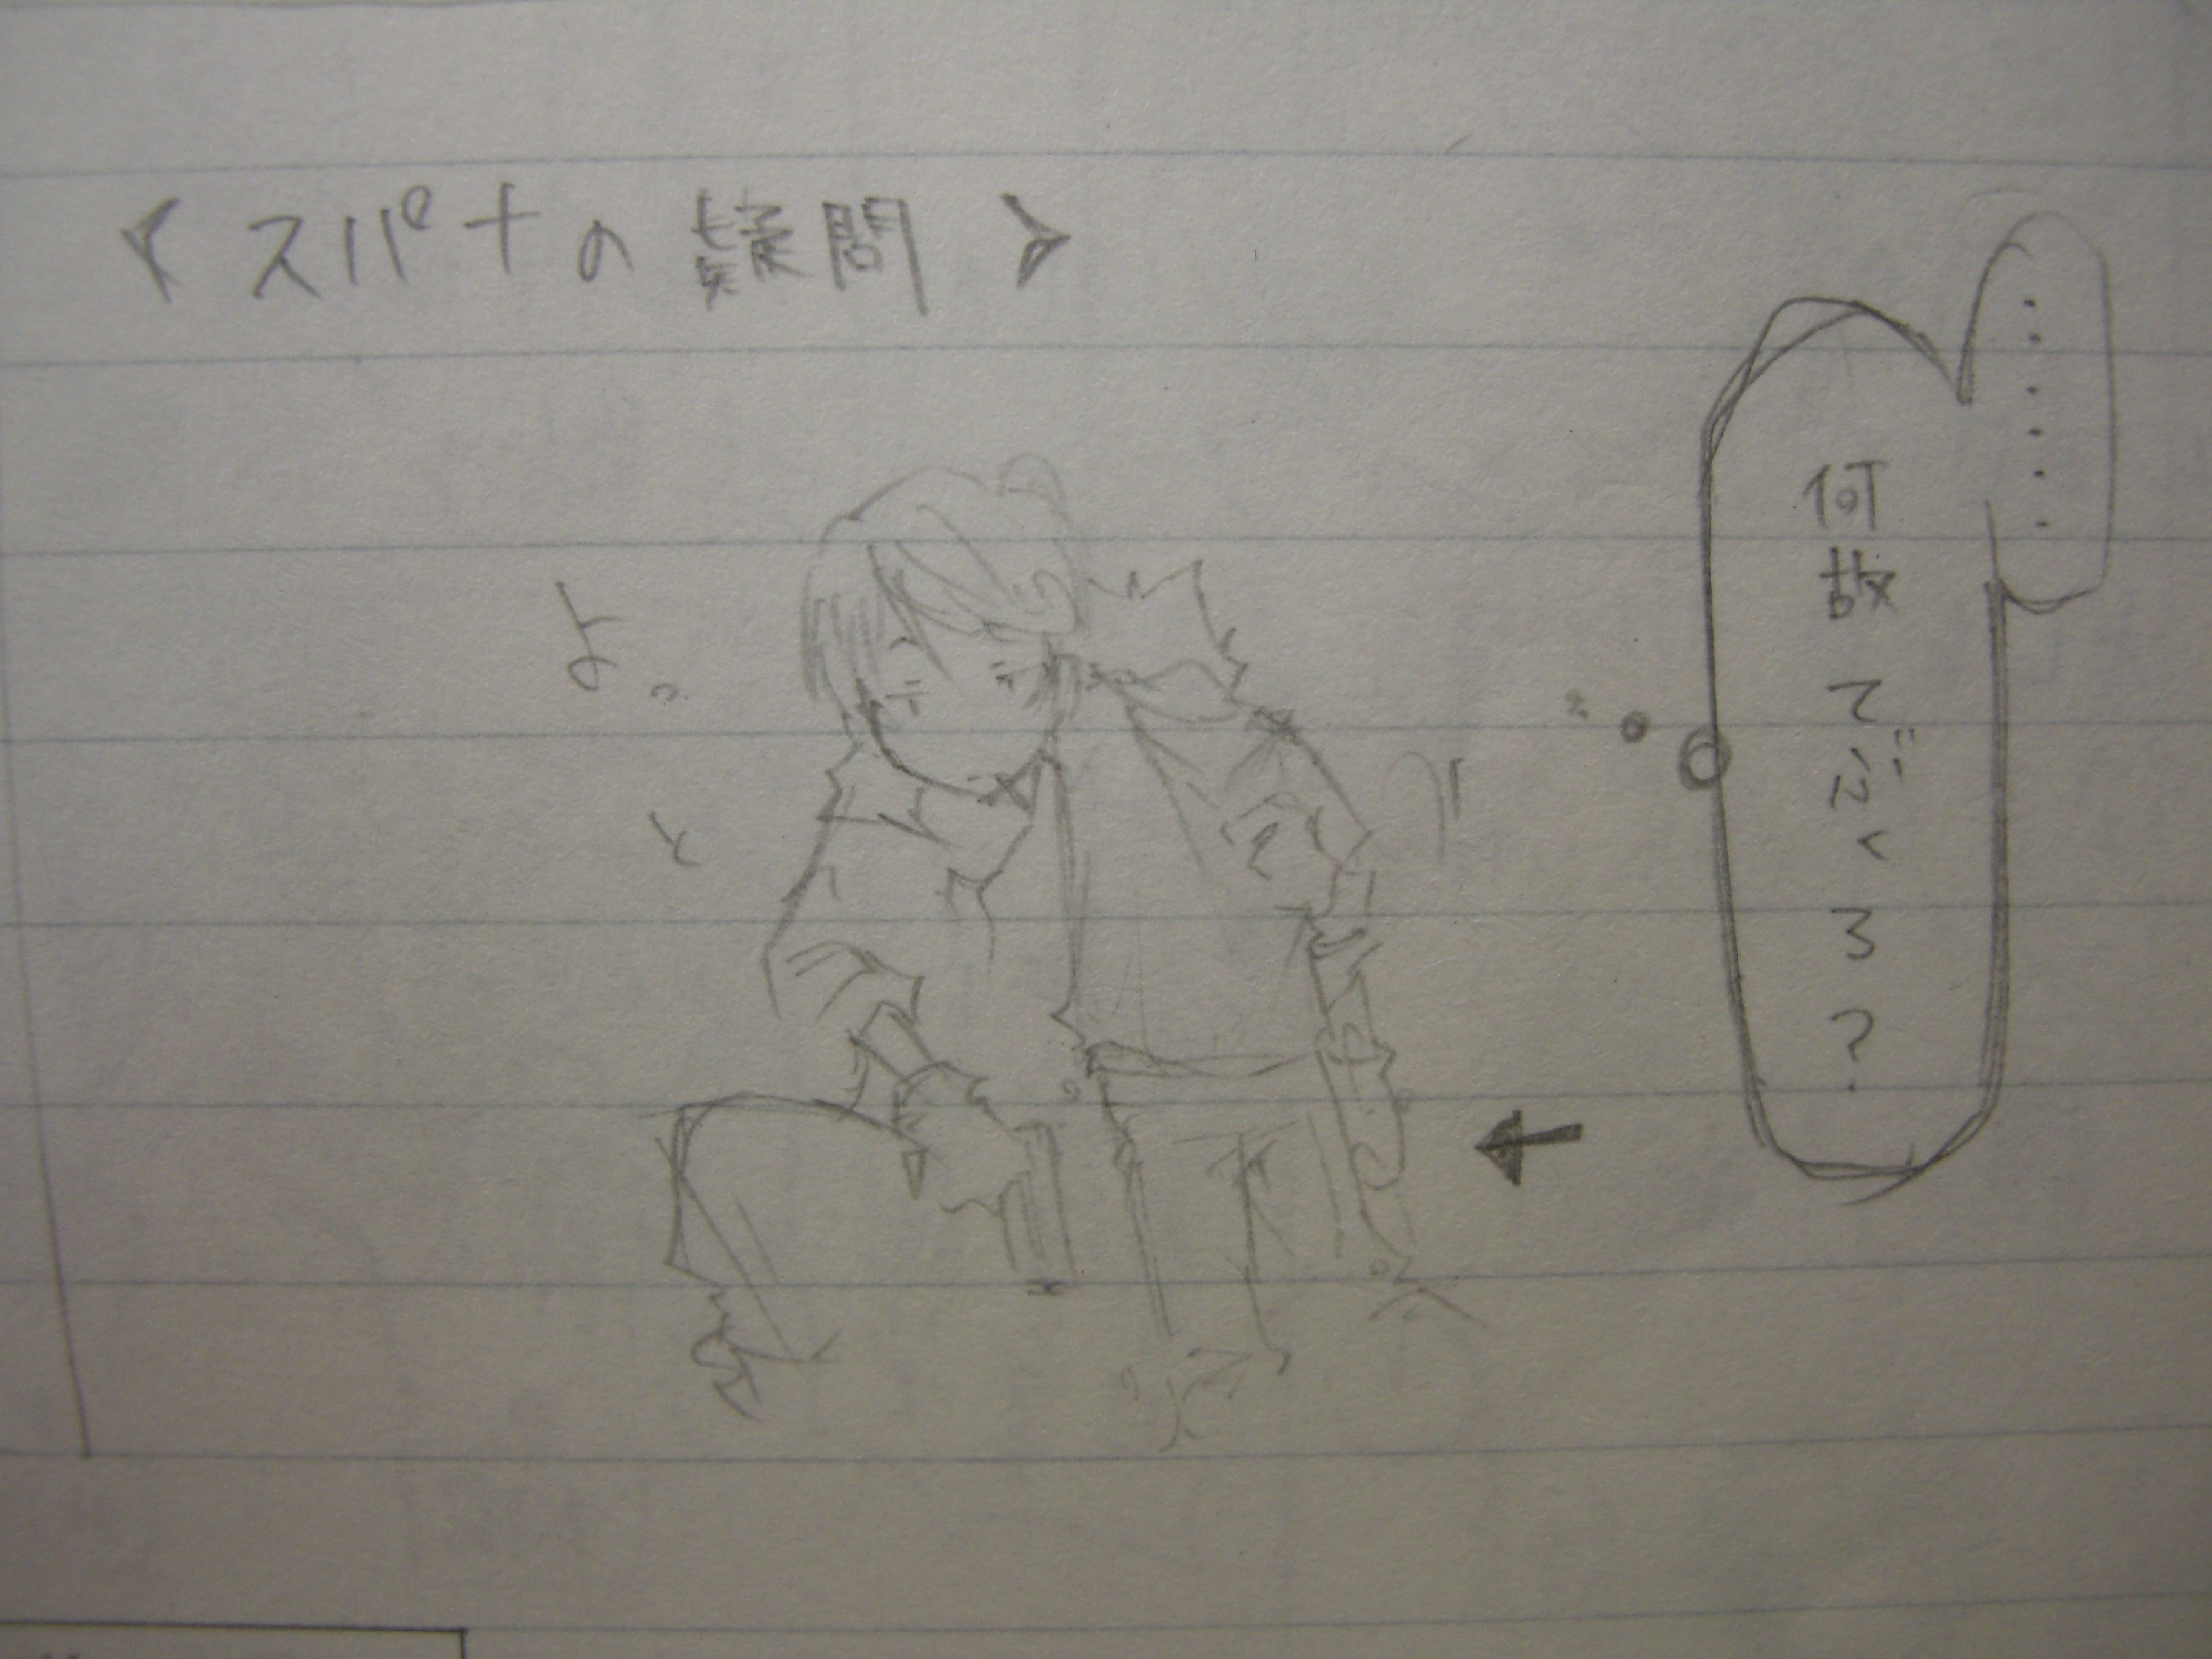 <スパナの疑問>
……
何故てぶくろ?
よっ
と